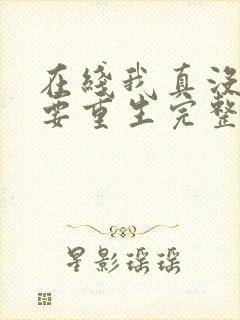 在綫我真没
要重生完整
星影瑶瑶